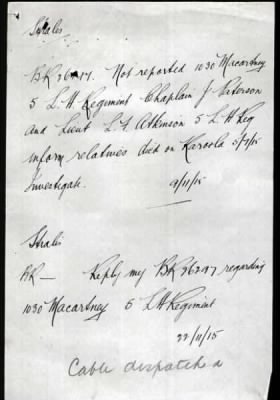 Strales
BR 26217. Not reported 1030 Macartney
5 L.H. Regiment Chaplain J Paterson
and Lieut L. F. Atkinson 5 L H Reg
inform relatives died on Karoola 5/7/15
Investigate.
9/11/15
Strales
BR — Reply my BR 26217 regarding
1030 Macartney 5 L H Regiment
22/11/15
Cable dispatched